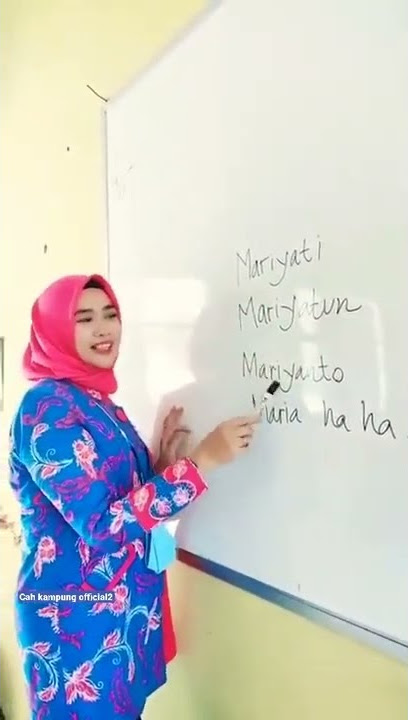 Mariyati
Mariyatun
Mariyanto
Maria ha ha
Cah kampung official2